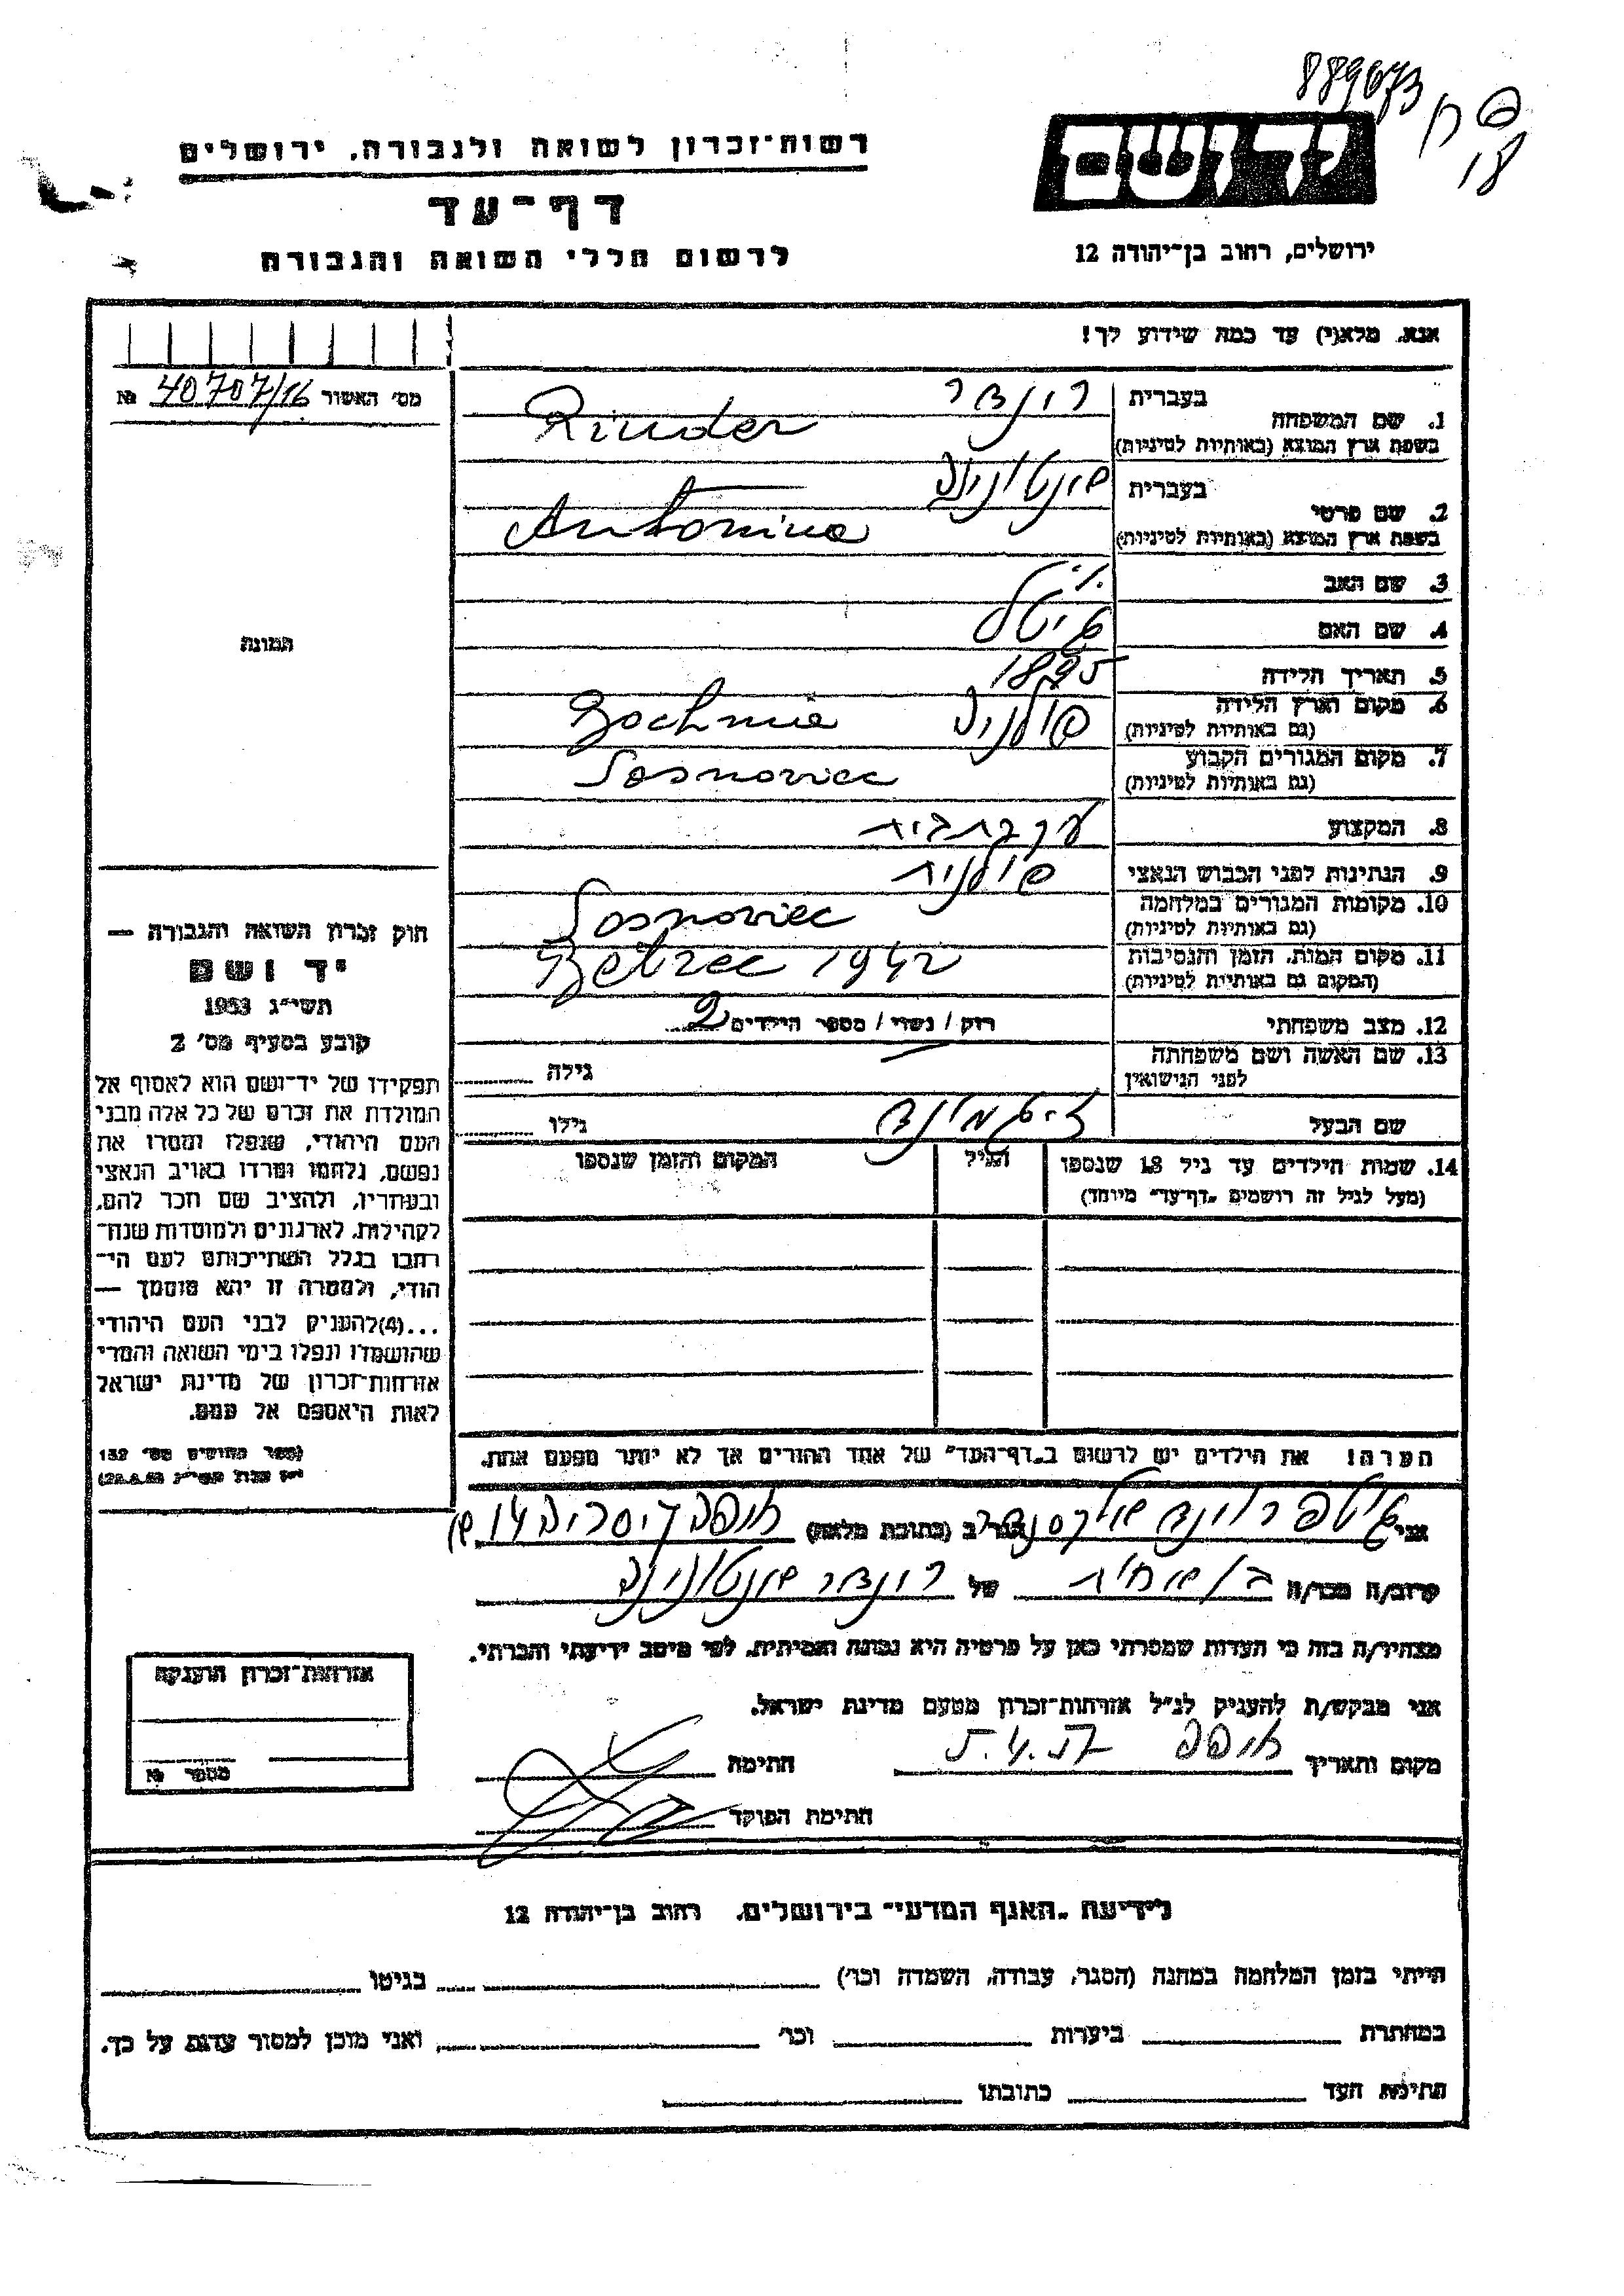 889673
פ ח
18
יד ושם
רשות־זכרון לשואה ולגבורה, ירושלים
דף־עד
לרשום חללי השואה והגבורה
ירושלים, רחוב בן־יהודה 12
אנא, מלא(י) עד כמה שידוע לך!
מס׳ האשור 40707/16 №
1. שם המשפחה
בעברית רונדר
בשפת ארץ המוצא (באותיות לטיניות) Rinder
2. שם פרטי
בעברית אנטונינה
בשפת ארץ המוצא (באותיות לטיניות) Antonina
3. שם האב
4. שם האם
5. תאריך הלידה 1895
6. מקום וארץ הלידה פולניה Bochnia
(גם באותיות לטיניות)
7. מקום המגורים הקבוע Sosnoviec
(גם באותיות לטיניות)
8. המקצוע עקרת בית
9. הנתינות לפני הכבוש הנאצי פולנית
10. מקומות המגורים במלחמה Sosnoviec
(גם באותיות לטיניות)
11. מקום המות, הזמן והנסיבות Bełzec 1942
(המקום גם באותיות לטיניות)
12. מצב משפחתי רוק / נשוי / מספר הילדים 2
13. שם האשה ושם משפחתה
לפני הנישואין
גילה
שם הבעל זיגמונד גילו
14. שמות הילדים עד גיל 18 שנספו
(מעל לגיל זה רושמים „דף־עד״ מיוחד)
הגיל
המקום והזמן שנספו
תמונת
חוק זכרון השואה והגבורה —
יד ושם
תשי״ג 1953
קובע בסעיף מס׳ 2
תפקידו של יד־ושם הוא לאסוף אל
המולדת את זכרם של כל אלה מבני
העם היהודי, שנפלו ומסרו את
נפשם, נלחמו ומרדו באויב הנאצי
ובעוזריו, ולהציב שם וזכר להם,
לקהילות, לארגונים ולמוסדות שנח־
רבו בגלל השתייכותם לעם הי־
הודי, ולמטרה זו יהא מוסמך —
...(4)להעניק לבני העם היהודי
שהושמדו ונפלו בימי השואה והמרי
אזרחות־זכרון של מדינת ישראל
לאות היאספם אל עמם.
(ספר החוקים מס׳ 132
הערה! את הילדים יש לרשום ב„דף־העד״ של אחד ההורים אך לא יותר מפעם אחת.
אני אלכסנדר הגר ב (כתובת מלאה) חיפה
קרוב/ה מכר/ה בן אחות של רונדר אנטונינה
מצהיר/ה בזה כי העדות שמסרתי כאן על פרטיה היא נכונה ואמיתית, לפי מיטב ידיעתי והכרתי.
אני מבקש/ת להעניק לנ״ל אזרחות־זכרון מטעם מדינת ישראל.
מקום ותאריך חיפה 5.4.57 חתימה
חתימת הפוקד
אזרחות־זכרון הוענקה
מספר №
לידיעת „האגף המדעי״ בירושלים, רחוב בן־יהודה 12
הייתי בזמן המלחמה במחנה (הסגר, עבודה, השמדה וכו׳) בגיטו
במחתרת ביערות וכו׳ ואני מוכן למסור עדות על כך.
חתימת העד כתובתו